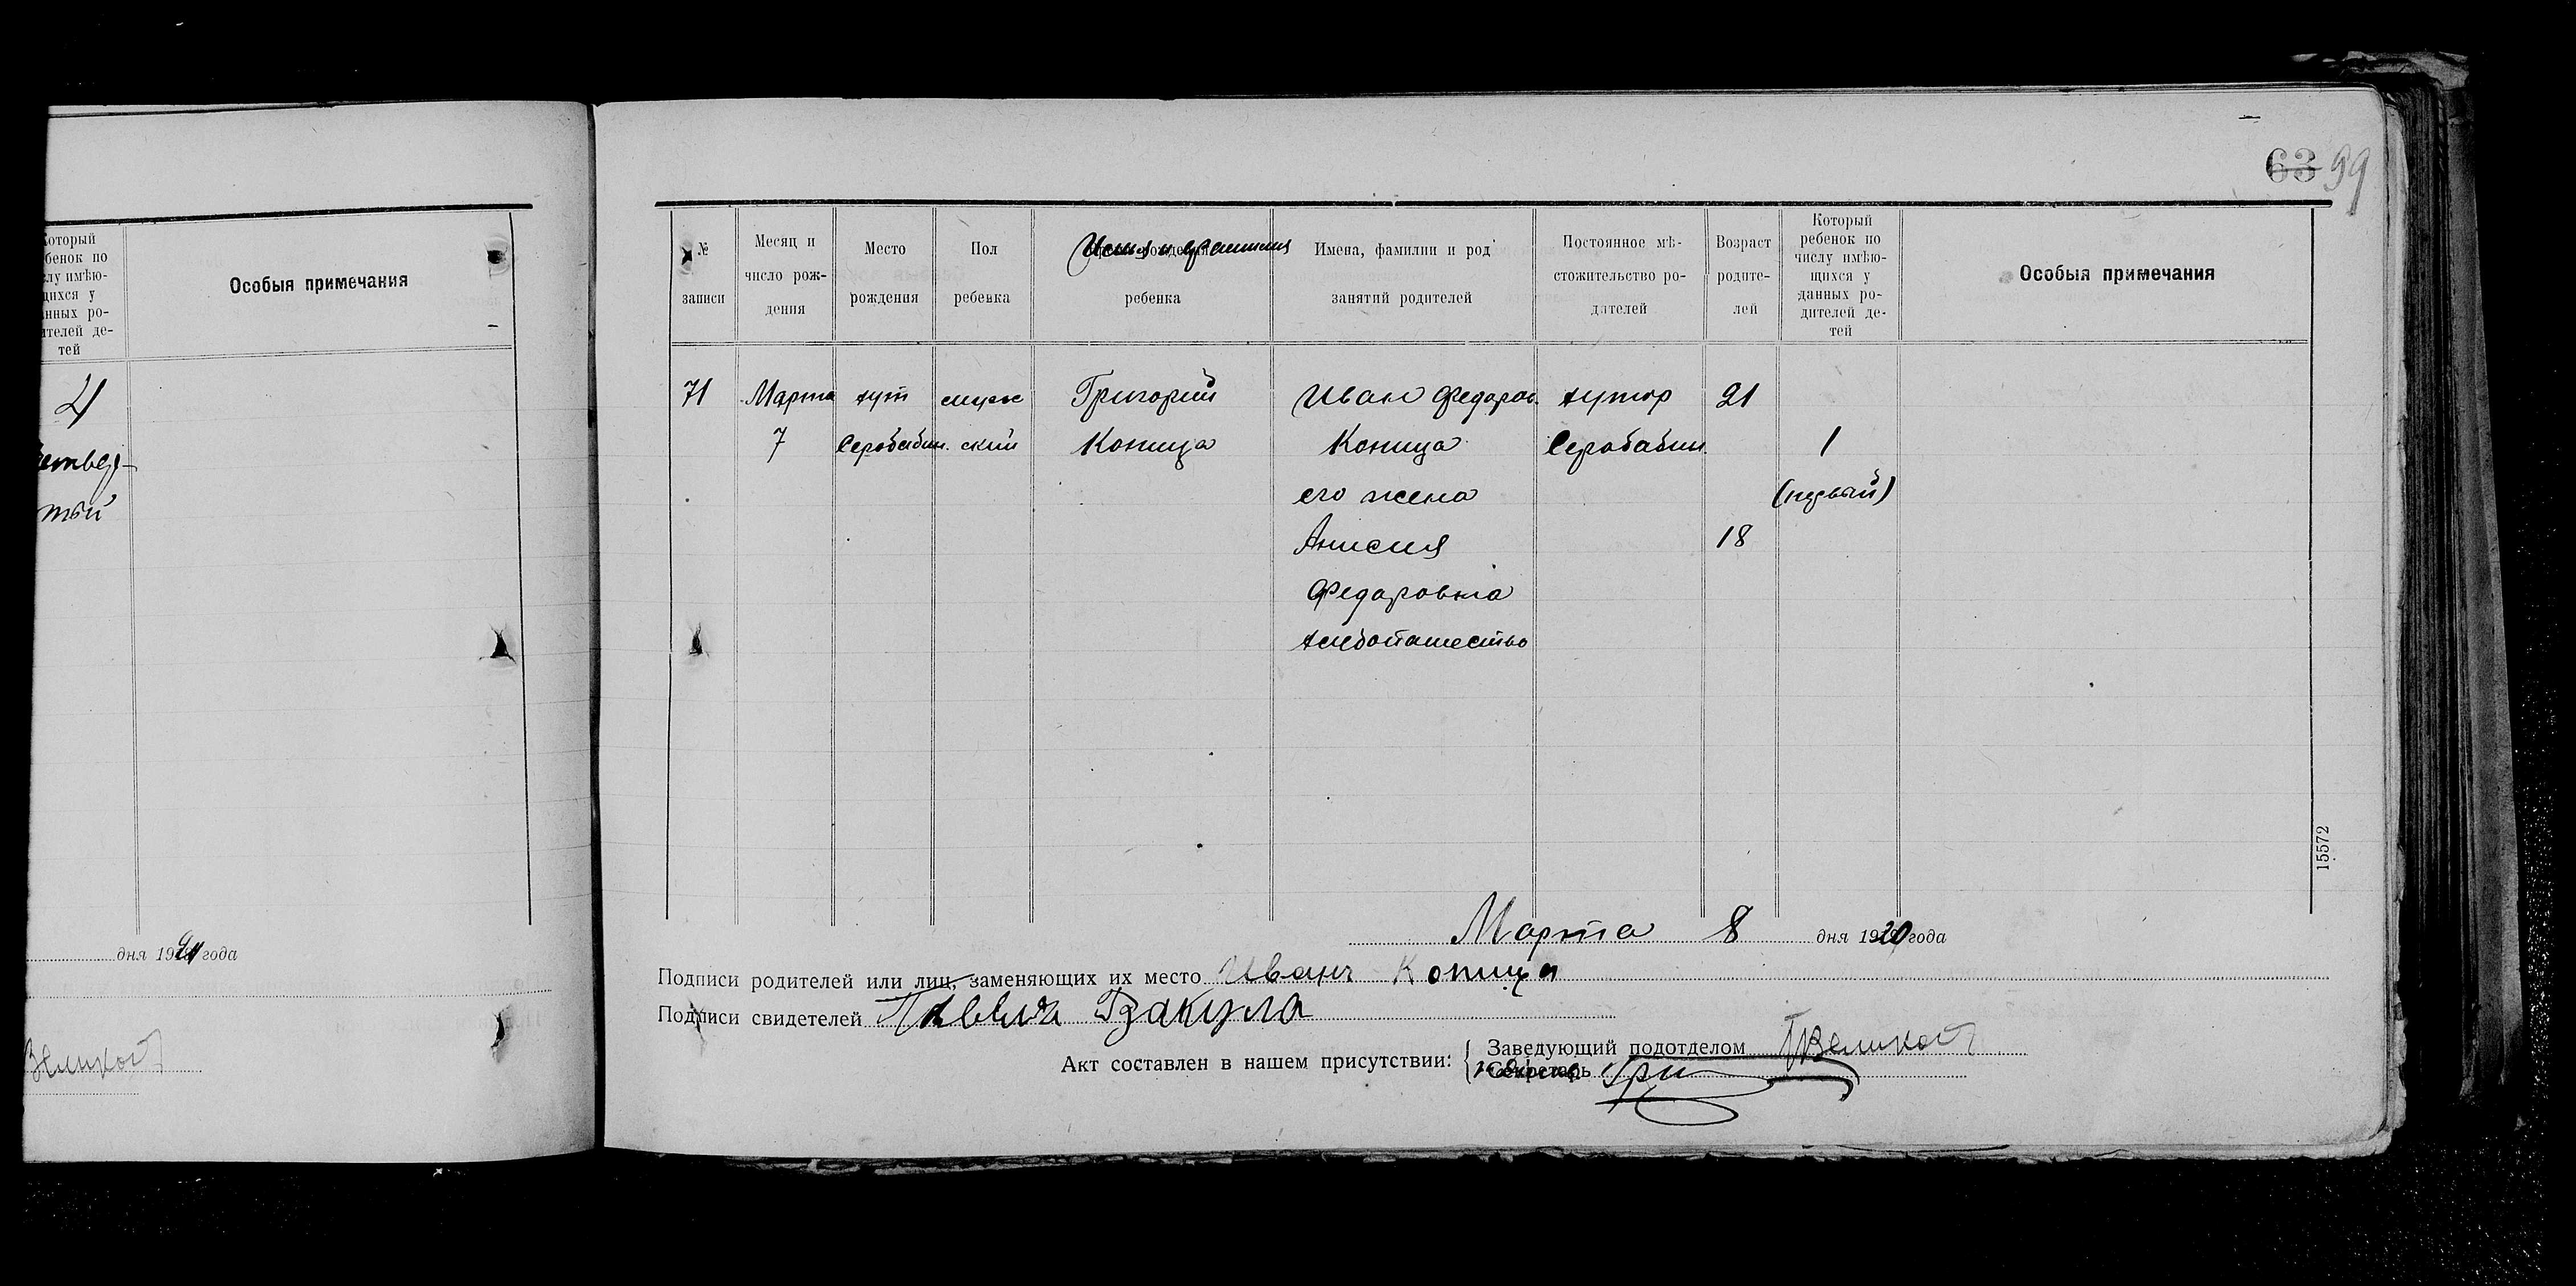 63 99
Который
ребенок по
числу имѣю-
щихся у
данных ро-
дителей де-
тей
Особыя примечания
4
четвер-
тый
дня 1920 года
Великой
№
записи
Месяц и
число рож-
дения
Место
рождения
Пол
ребенка
Имя и фамилия
ребенка
Имена, фамилии и род
занятий родителей
Постоянное мѣ-
стожительство ро-
дителей
Возраст
родите-
лей
Который
ребенок по
числу имѣю-
щихся у
данных ро-
дителей де-
тей
Особыя примечания
71 Марта хут мужс Григорий Иван Федоров. хутор 21
7 Серобабин. ский Копица Копица Серобабин. 1
его жена (первый)
Анисия 18
Федоровна
хлебопашество
15572
Марта 8 дня 1920 года
Подписи родителей или лиц, заменяющих их место Иванъ Копица
Подписи свидетелей Вакула
Акт составлен в нашем присутствии:
Заведующий подотделом Великой
Секретарь